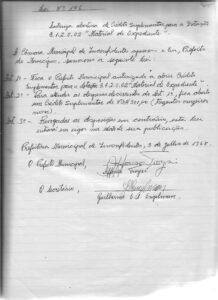 Lei Nº 196
Autoriza abertura de Crédito Suplementar para a Dotação
3.1.2.0.02 "Material de Expediente".
A Câmara Municipal de Inconfidentes aprova e eu, Prefeito
do Município, sanciono a seguinte lei:
Art. 1º - Fica o Prefeito Municipal autorizado a abrir Crédito
Suplementar para a dotação 3.1.2.0.02 "Material de Expediente".
Art. 2º - Para atender as despesas decorrentes do Art. 1º, fica aberto
um Crédito Suplementar de
Art. 3º - Revogadas as disposições em contrário, esta lei
entrará em vigor na data de sua publicação.
Prefeitura Municipal de Inconfidentes, 3 de julho de 1968
O Prefeito Municipal,
O Secretário,
Guilherme